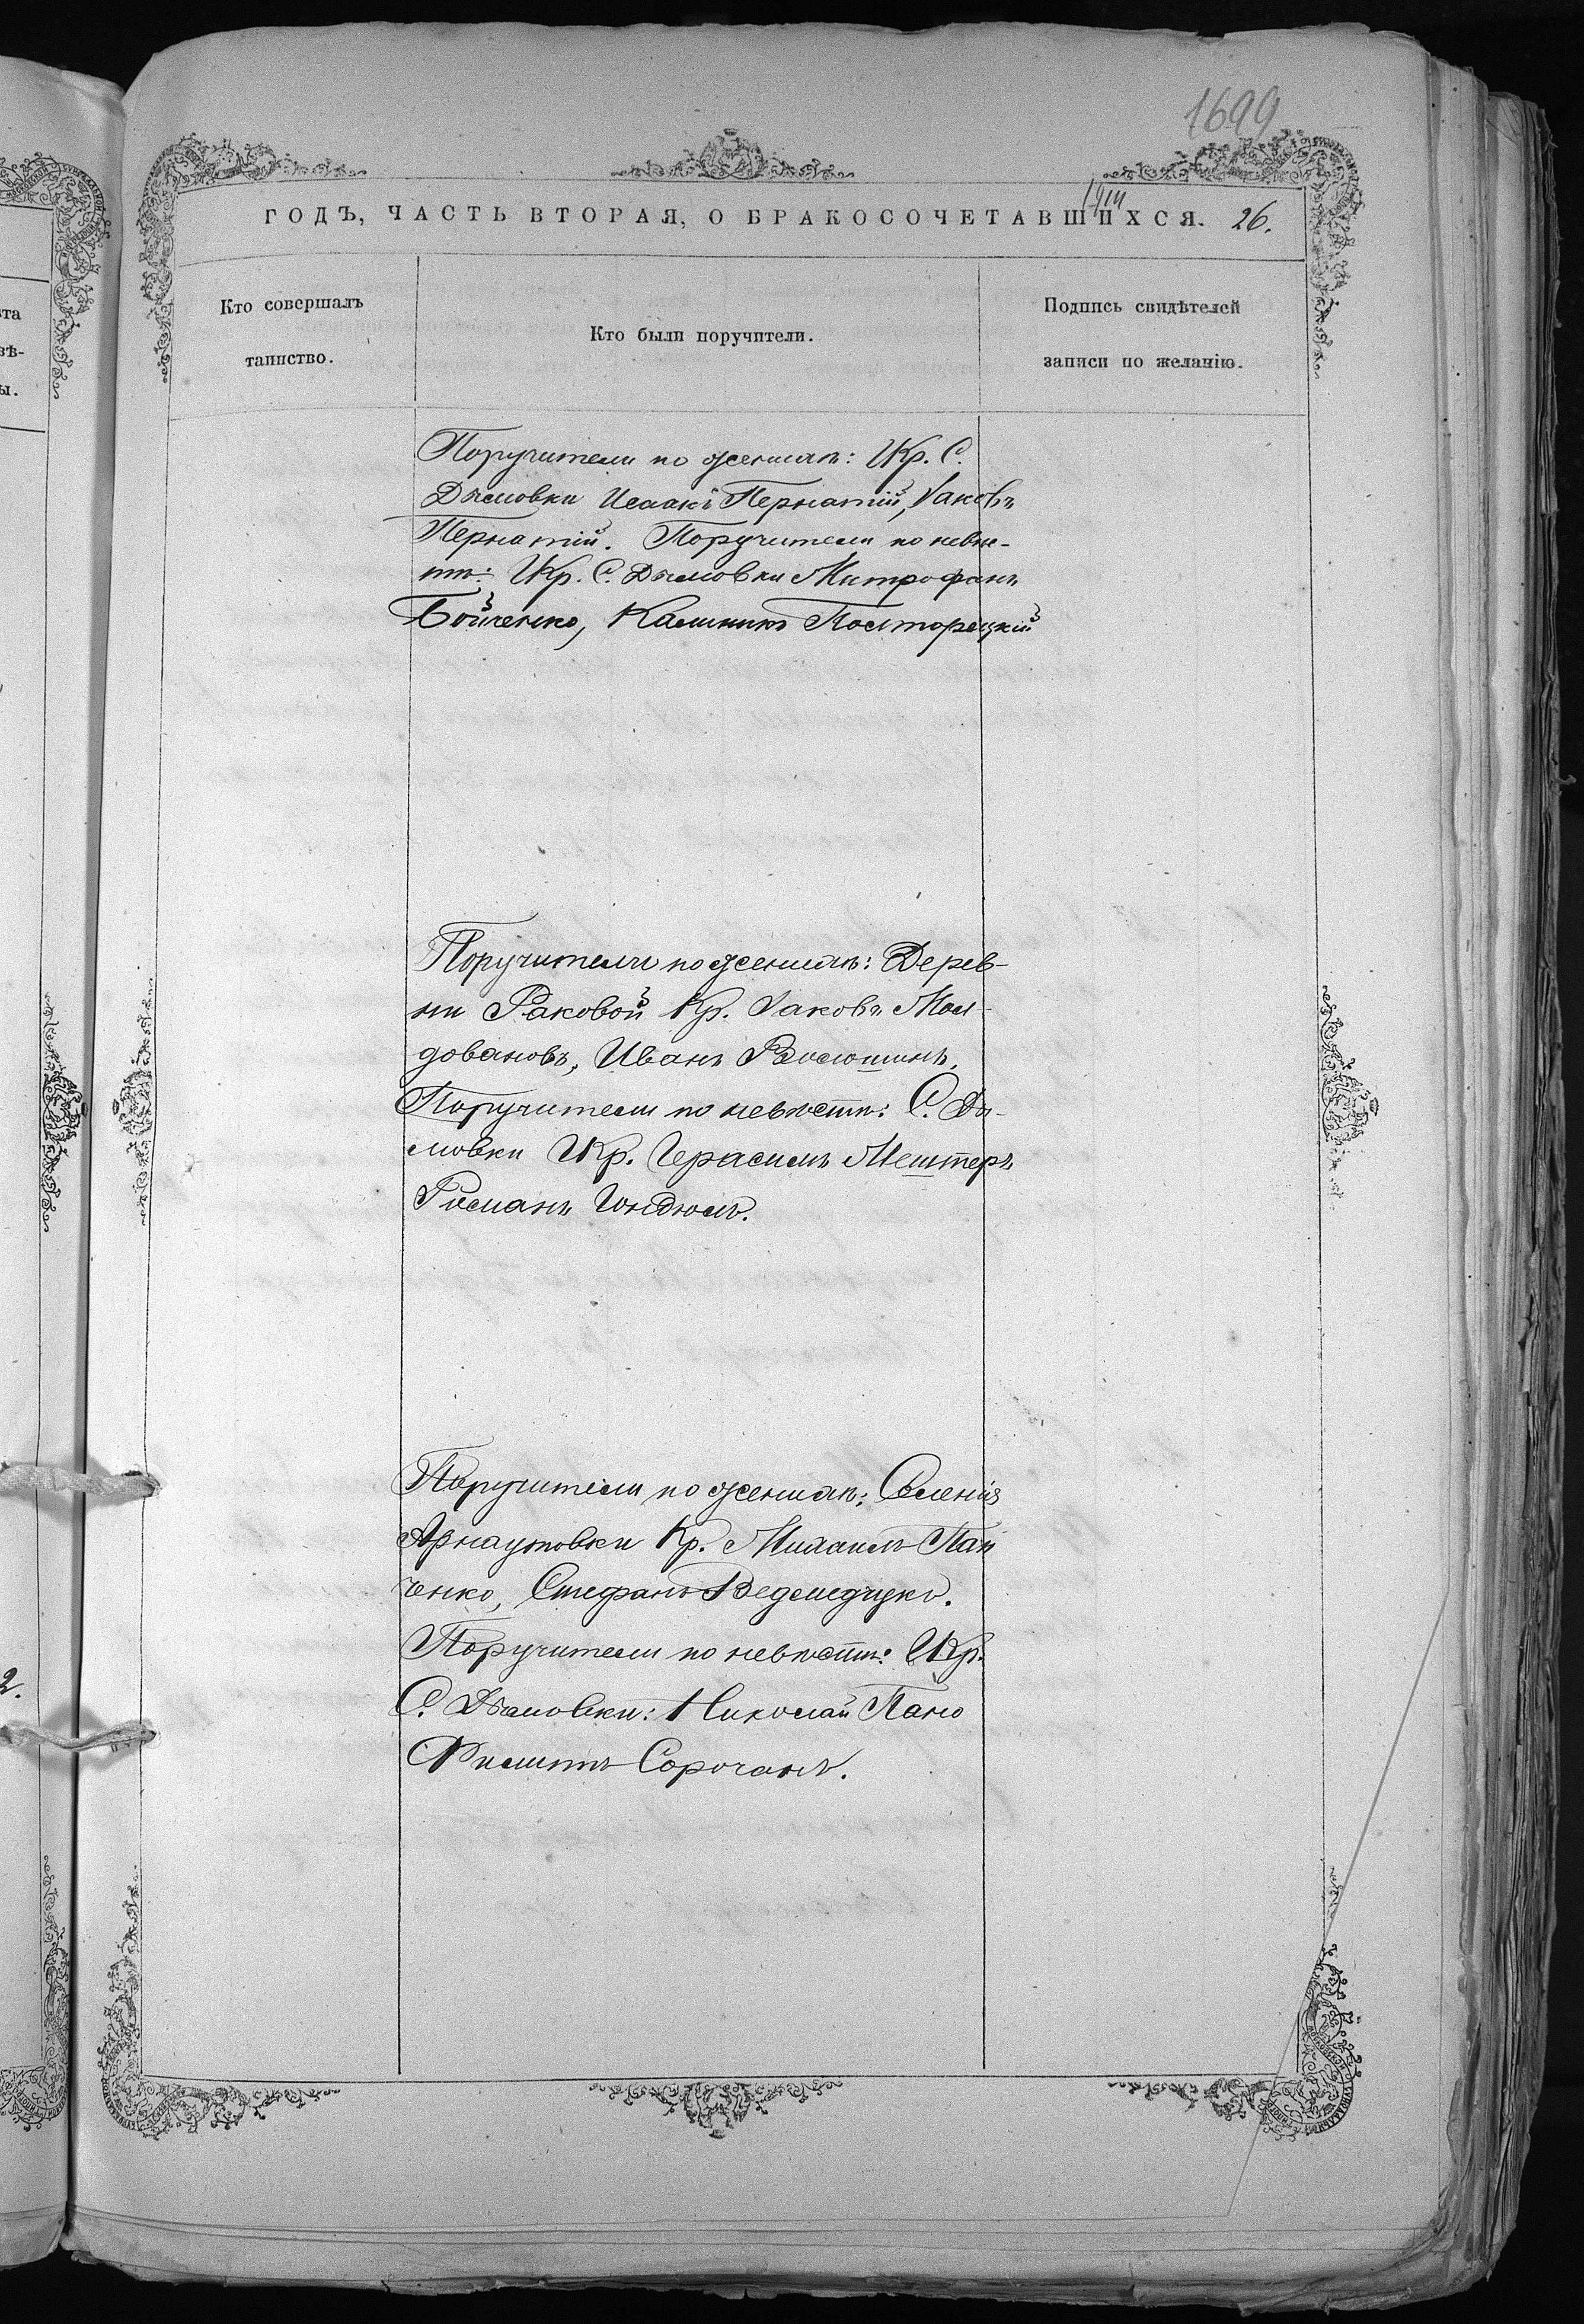 1699
ГОДЪ, ЧАСТЬ ВТОРАЯ, О БРАКОСОЧЕТАВШИХСЯ. 26.
Кто совершалъ
таинство.
Кто были поручители.
Подпись свидѣтелей
записи по желанію.
та
вѣ-
ы.
Поручители по женихѣ: Кр. С.
Дымовки Исаакъ Пернатій, Іаковъ
Пернатій. Поручители по невѣс-
тѣ: Кр. С. Дымовки Митрофанъ
Бойченко, Калиникъ Полторецкій
Поручители по женихѣ: Дерев-
ни Раковой Кр. Іаковъ Мол-
довановъ, Иванъ
Поручители по невѣстѣ: С. Ды-
мовки Кр. Герасимъ Мештеръ
Романъ
Поручители по женихѣ: Селенія
Арнаутовки Кр. Михаилъ Пан
ченко, Стефанъ Ведмедчукъ.
Поручители по невѣстѣ: Кр.
С. Дымовки: Николай Пано
Филиппъ Сорочанъ.
2.